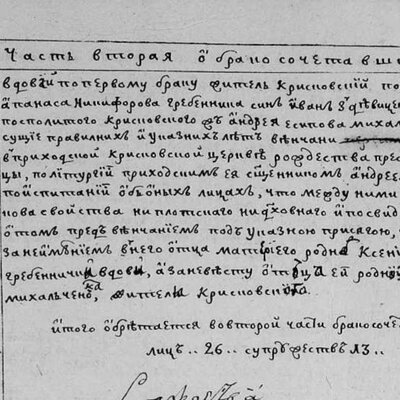 Часть вторая о҆ бра́косочета́вши
вдовы́й попервому браку жи́тель Крисковскїй по
А҆ѳанаса Никифорова Гребенника син И҆ван з дѣвицею
посполитого Крисковского Андреа Есипова михал
сущїе правилних и҆ указних лѣтъ вѣнчани
в приходской Крисковской церквѣ рождества пре
цы, по литургїи приходским еѧ священником, андрее
по и҆спитанїи о҆бо́ных лицахъ, что между ними
нова свойства ни плотского ни духовного и҆ посвид
о҆том предъ вѣнчанїем под указною присягою,
за неимѣнїем у него о҆тца матерїего родна Ксенїѧ
гребенничиха вдова, а за невѣсту о҆тецъ ей родно
михалченка, жители Крисковскїѧ
и҆того о҆брѣтается во второй части бракосоче
лицъ .. 26 .. супружествъ 13 ..